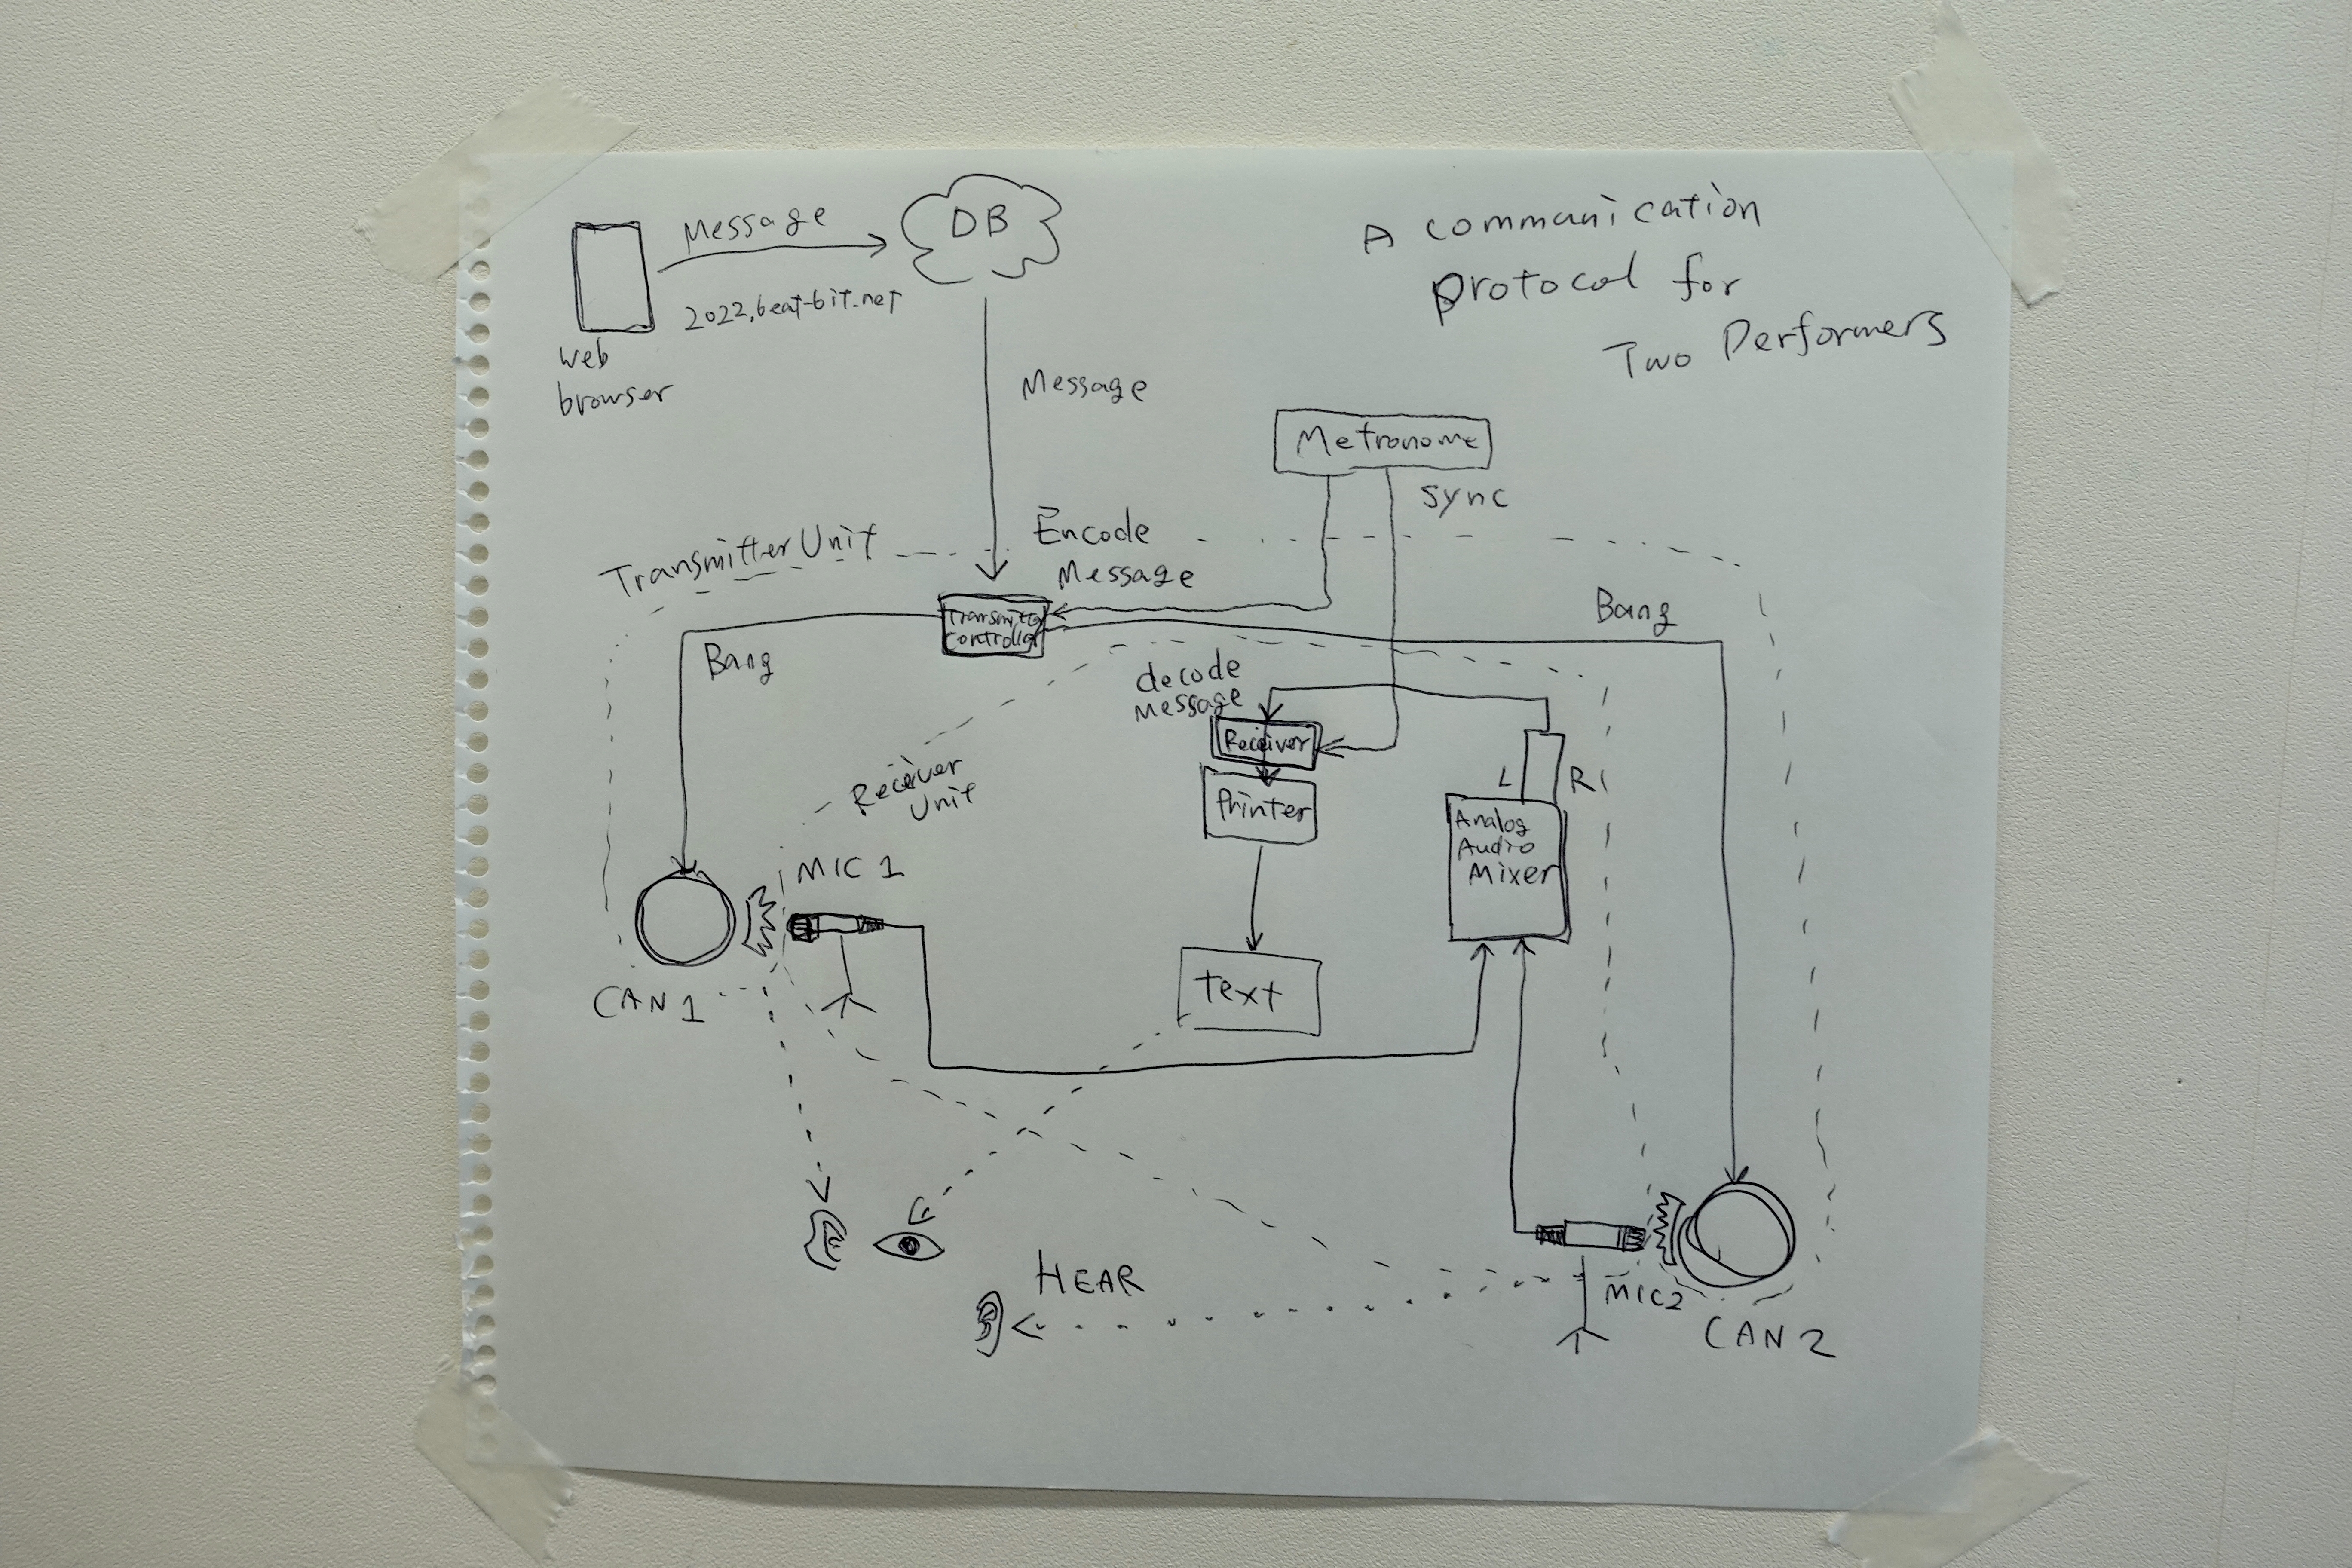 A communication
protocol for
Two Performers
Message
DB
2022.beat-bit.net
web
browser
Message
Metronome
sync
Encode
Message
Transmitter Unit
Transmitter
Controller
Bang
Bang
decode
Message
Receiver
Receiver
Unit
Printer
L
R
Analog
Audio
Mixer
MIC 1
CAN 1
text
HEAR
MIC2
CAN 2